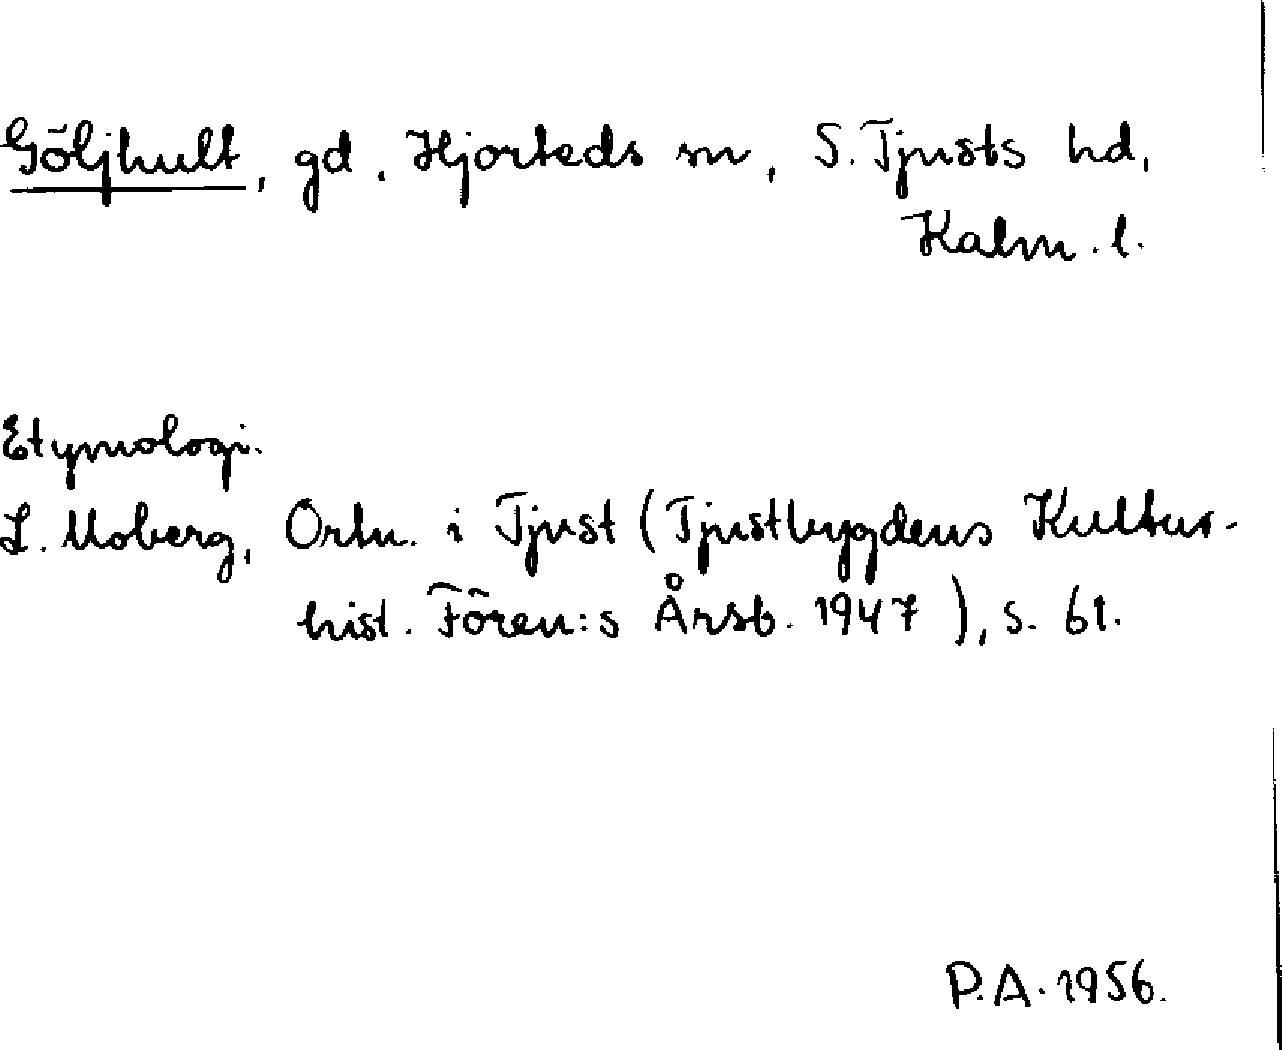 Göljhult, gd, Hjorteds sn, S. Tjusts hd,
Kalm. l.
Etymologi.
L. Moberg, Ortn. i Tjust (Tjustbygdens Kultur-
hist. Fören:s Årsb. 1947), s. 61.
P.A. 1956.